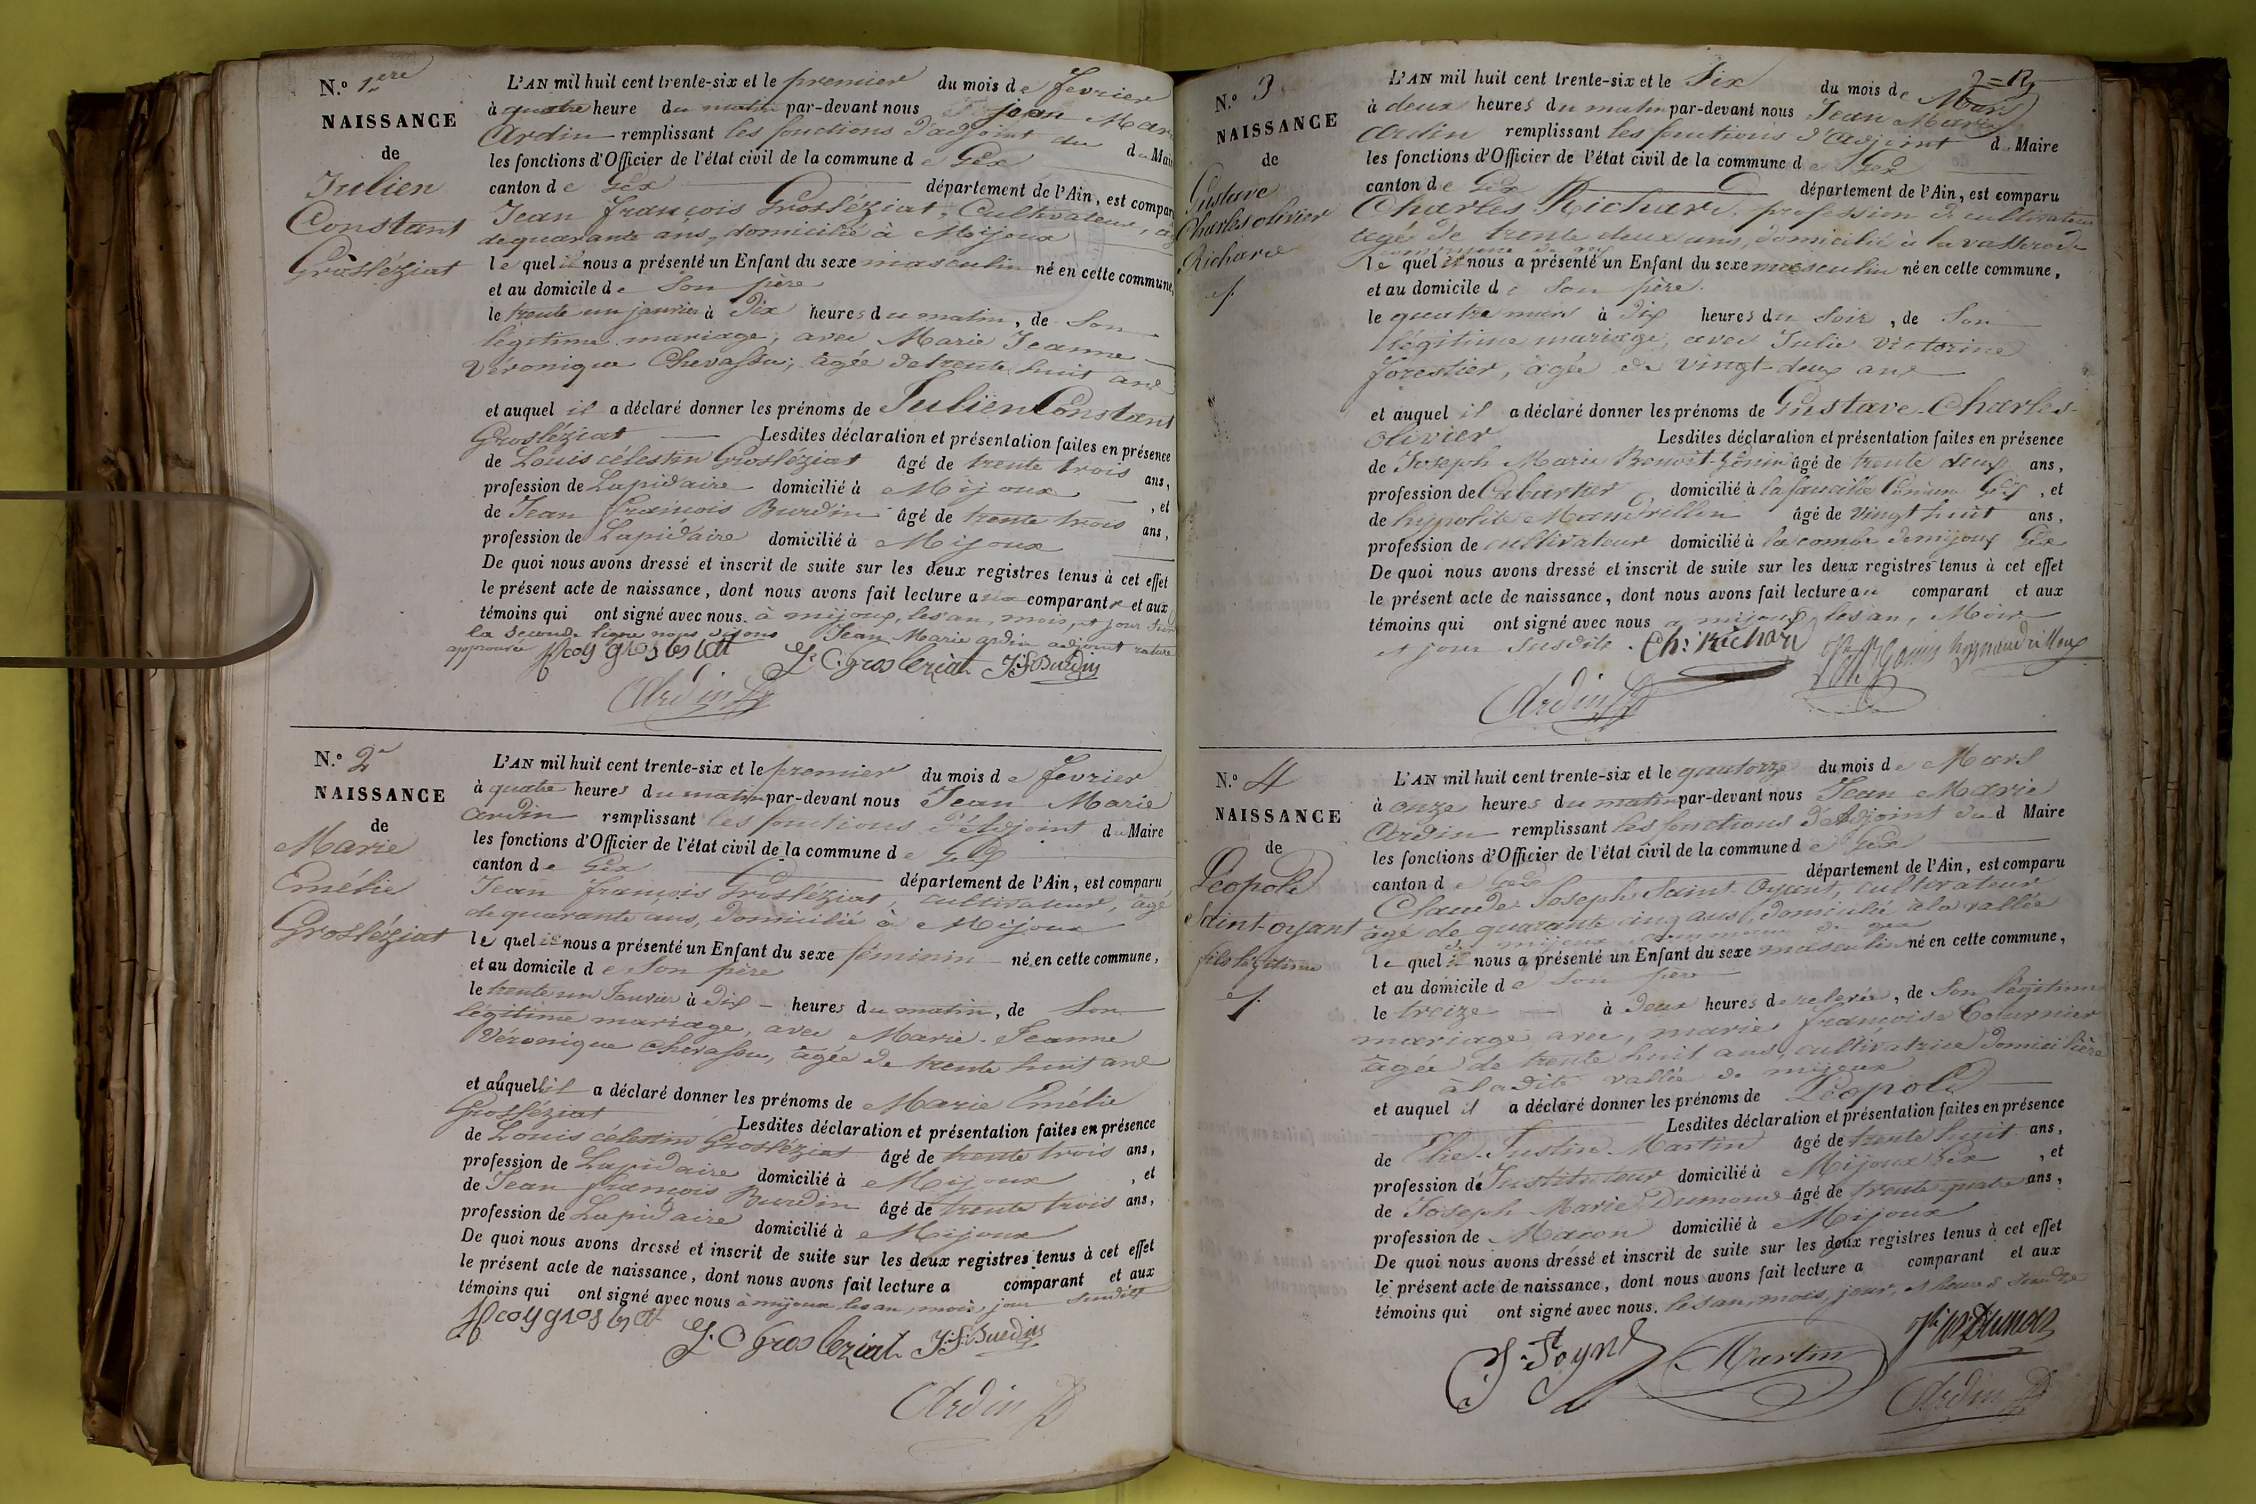 N.º 1.ere
NAISSANCE
de
Julien
Constant
Grosléziat
L'AN mil huit cent trente-six et le premier du mois de fevrier
à quatre heure du matin par-devant nous jean Mar
Ardin remplissant les fonctions d'adjoint du du Mai
les fonctions d'Officier de l'état civil de la commune de Gex
canton de Gex département de l'Ain, est compar
Jean françois Grosléziat, Cultivateur, ag
de quarante ans, domicilié à Mijoux
le quel il nous a présenté un Enfant du sexe masculin né en cette commune,
et au domicile de Son père
le trente un janvier à Dix heures du matin, de Son
légitime mariage, avec Marie Jeanne
Véronique Chevassu, âgée de trente huit ans
et auquel il a déclaré donner les prénoms de Julien Constant
Grosléziat Lesdites déclaration et présentation faites en présence
de Louis célestin Grosléziat âgé de trente trois ans,
profession de Lapidaire domicilié à Mijoux , et
de Jean françois Burdin âgé de trente trois ans,
profession de Lapidaire domicilié à Mijoux
De quoi nous avons dressé et inscrit de suite sur les deux registres tenus à cet effet
le présent acte de naissance, dont nous avons fait lecture aux comparant et aux
témoins qui ont signé avec nous. à mijoux, les an, mois, et jour
la seconde ligne nous disons Jean Marie ardin adjoint rature
approuvée
L. C. Grosleziat J. F. Burdin
Ardin
N.º 2
NAISSANCE
de
Marie
Emélie
Grosléziat
L'AN mil huit cent trente-six et le premier du mois de fevrier
à quatre heures du matin par-devant nous Jean Marie
ardin remplissant les fonctions d'Adjoint du Maire
les fonctions d'Officier de l'état civil de la commune de Gex
canton de Gex département de l'Ain, est comparu
Jean françois Grosléziat, cultivateur, âgé
de quarante ans, domicilié à Mijoux
le quel il nous a présenté un Enfant du sexe féminin né en cette commune,
et au domicile de Son père
le trente un Janvier à Dix heures du matin, de Son
légitime mariage, avec Marie-Jeanne
Véronique Chevassu, âgée de trente huit ans
et auquel il a déclaré donner les prénoms de Marie Emélie
Grosléziat Lesdites déclaration et présentation faites en présence
de Louis célestin Grosléziat âgé de trente trois ans,
profession de Lapidaire domicilié à Mijoux , et
de Jean françois Burdin âgé de trente trois ans,
profession de Lapidaire domicilié à Mijoux
De quoi nous avons dressé et inscrit de suite sur les deux registres tenus à cet effet
le présent acte de naissance, dont nous avons fait lecture a comparant et aux
témoins qui ont signé avec nous à mijoux les an, mois, jour susdit
L. C. Grosleziat J. F. Burdin
Ardin
N.º 3
NAISSANCE
de
Gustave
Charles olivier
Richard
L'AN mil huit cent trente-six et le Six du mois de Mars
à deux heures du matin par-devant nous Jean Marie
Ardin remplissant les fonctions d'Adjoint du Maire
les fonctions d'Officier de l'état civil de la commune de Gex
canton de Gex département de l'Ain, est comparu
Charles Richard, profession de cultivateur
agé de trente deux ans, domicilié à la
le quel il nous a présenté un Enfant du sexe masculin né en cette commune,
et au domicile de Son père.
le quatre mars à Dix heures du Soir, de Son
légitime mariage, avec Julie Victorine
forestier, âgée de vingt-deux ans
et auquel il a déclaré donner les prénoms de Gustave-Charles-
olivier Lesdites déclaration et présentation faites en présence
de Joseph Marie Benoit-Gonin âgé de trente deux ans,
profession de Cabartier, domicilié à la faucille Gex, et
de hypolite Mandrillon âgé de vingt huit ans,
profession de cultivateur domicilié à la combe de mijoux Gex
De quoi nous avons dressé et inscrit de suite sur les deux registres tenus à cet effet
le présent acte de naissance, dont nous avons fait lecture au comparant et aux
témoins qui ont signé avec nous à mijoux, les an, Mois
et jour Susdits. Ch: Richard
Ardin
N.º 4
NAISSANCE
de
Léopold
Saint-oyant
fils légitime
L'AN mil huit cent trente-six et le quatorze du mois de Mars
à onze heures du matin par-devant nous Jean Marie
Ardin remplissant les fonctions d'Adjoint du d Maire
les fonctions d'Officier de l'état civil de la commune de Gex
canton de Gex département de l'Ain, est comparu
Claude Joseph Saint Oyant, cultivateur
âgé de quarante cinq ans, domicilié à la vallée
de mijoux commune de gex
le quel il nous a présenté un Enfant du sexe masculin né en cette commune,
et au domicile de Son père
le treize à Deux heures de relevée, de Son légitime
mariage avec, marie françoise Tournier
âgée de trente huit ans, cultivatrice domicilière
à la dite vallée de mijoux
et auquel il a déclaré donner les prénoms de Léopold
Lesdites déclaration et présentation faites en présence
de Elie-Justin-Martin âgé de trente huit ans,
profession de Instituteur domicilié à Mijoux Gex , et
de Joseph Marie Dumond âgé de trente quatre ans,
profession de Macon domicilié à Mijoux
De quoi nous avons dressé et inscrit de suite sur les deux registres tenus à cet effet
le présent acte de naissance, dont nous avons fait lecture a comparant et aux
témoins qui ont signé avec nous. les an, mois, jour, et heure susdits
Martin
Ardin